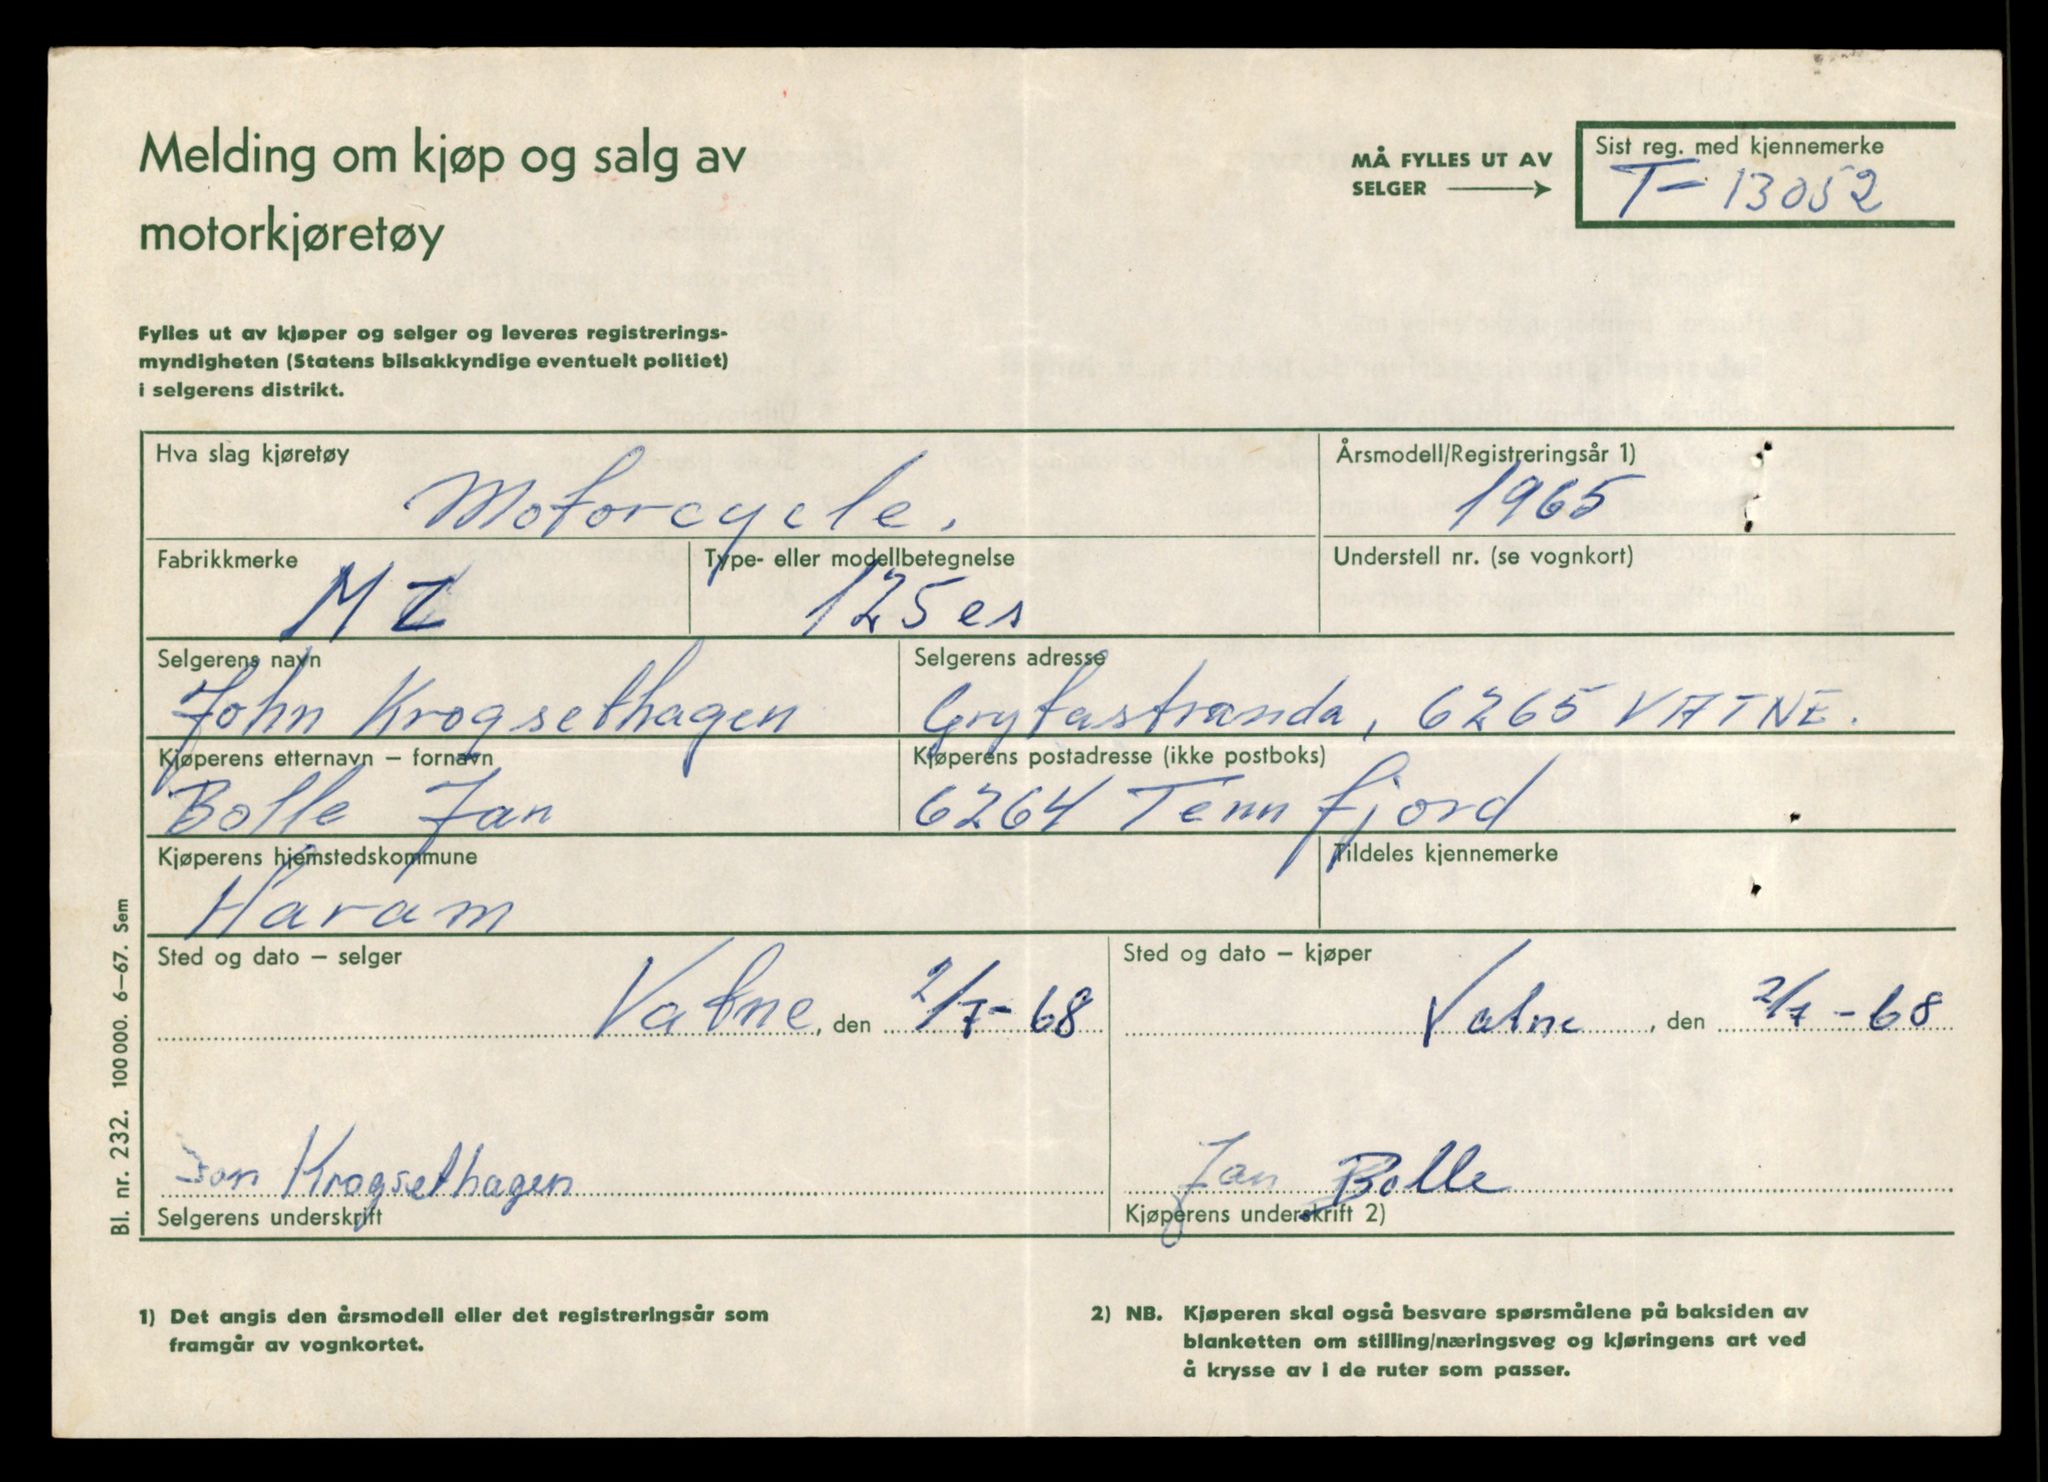 Melding om kjøp og salg av
motorkjøretøy
MÅ FYLLES UT AV
SELGER
Sist reg. med kjennemerke
T- 13052
Fylles ut av kjøper og selger og leveres registrerings-
myndigheten (Statens bilsakkyndige eventuelt politiet)
i selgerens distrikt.
Hva slag kjøretøy
Motorcycle.
Årsmodell/Registreringsår 1)
1965
Fabrikkmerke
MZ
Type- eller modellbetegnelse
125 es
Understell nr. (se vognkort)
Selgerens navn
John Krogsethagen
Selgerens adresse
Grytastranda, 6265 VATNE.
Kjøperens etternavn – fornavn
Bolle Jan
Kjøperens postadresse (ikke postboks)
6264 Tennfjord
Kjøperens hjemstedskommune
Haram
Tildeles kjennemerke
Sted og dato – selger
Vatne, den 2/7-68
Sted og dato – kjøper
Vatne, den 2/7-68
Jon Krogsethagen
Selgerens underskrift
Jan Bolle
Kjøperens underskrift 2)
Bl. nr. 232. 100 000. 6–67. Sem
1) Det angis den årsmodell eller det registreringsår som
framgår av vognkortet.
2) NB. Kjøperen skal også besvare spørsmålene på baksiden av
blanketten om stilling/næringsveg og kjøringens art ved
å krysse av i de ruter som passer.